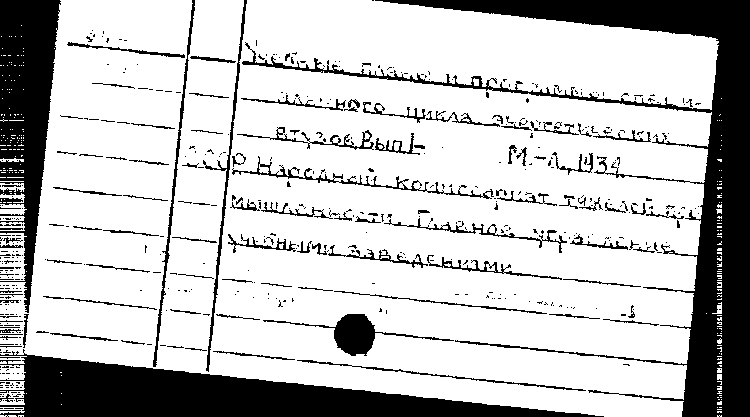 Учебные планы и программы специ-
ального цикла энергетических
втузов Вып 1- М.-Л., 1934
СССР. Народный комиссариат тяжелой про
мышленности. Главное управление
учебными заведениями